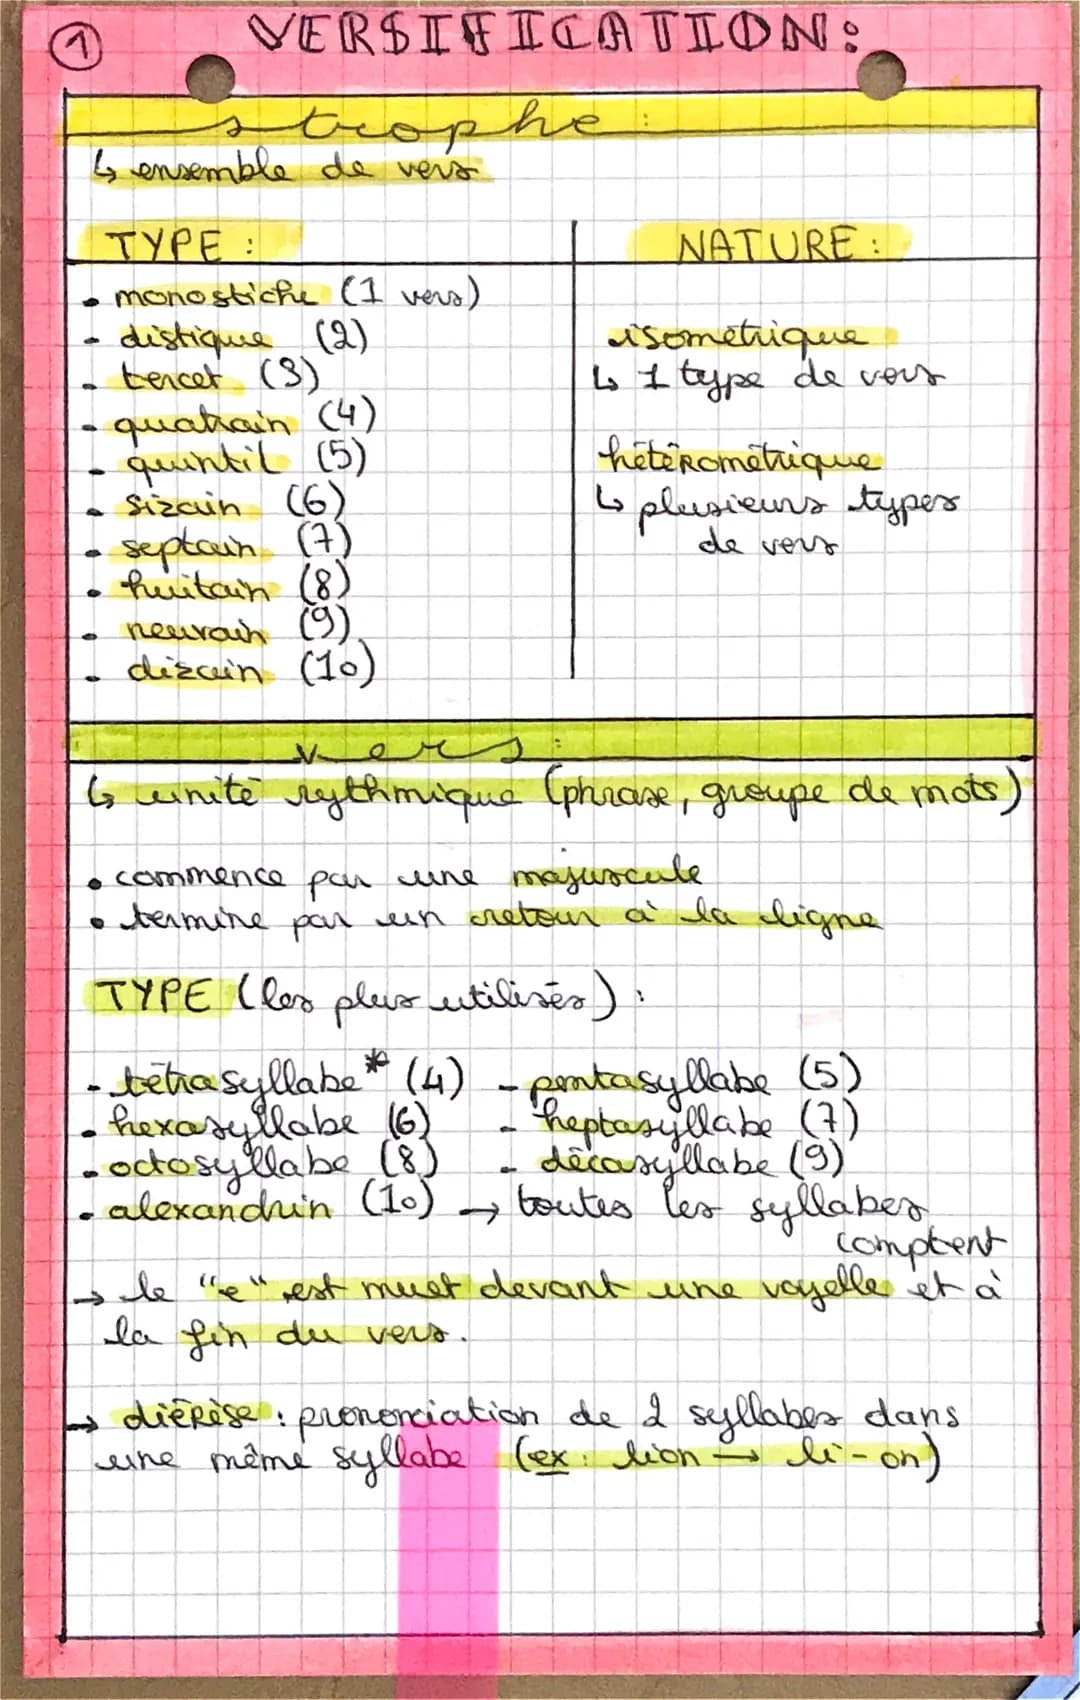 1
VERSIFICATION:
strophe :
↳ ensemble de vers
TYPE :
NATURE :
• monostiche (1 vers)
- distique (2)
- tercet (3)
- quatrain (4)
- quintil (5)
• sizain (6)
• septain (7)
• huitain (8)
• neuvain (9)
- dizain (10)
isométrique
↳ 1 type de vers
hétérométrique
↳ plusieurs types
de vers
vers :
↳ unité rythmique (phrase, groupe de mots)
• commence par une majuscule
• termine par un retour à la ligne
TYPE (les plus utilisés) :
- tétrasyllabe* (4) - pentasyllabe (5)
• hexasyllabe (6) - heptasyllabe (7)
- octosyllabe (8) - décasyllabe (9)
• alexandrin (10) → toutes les syllabes
comptent
→ le "e" est muet devant une voyelle et à
la fin du vers.
→ diérèse : prononciation de 2 syllabes dans
une même syllabe (ex : lion → li-on)